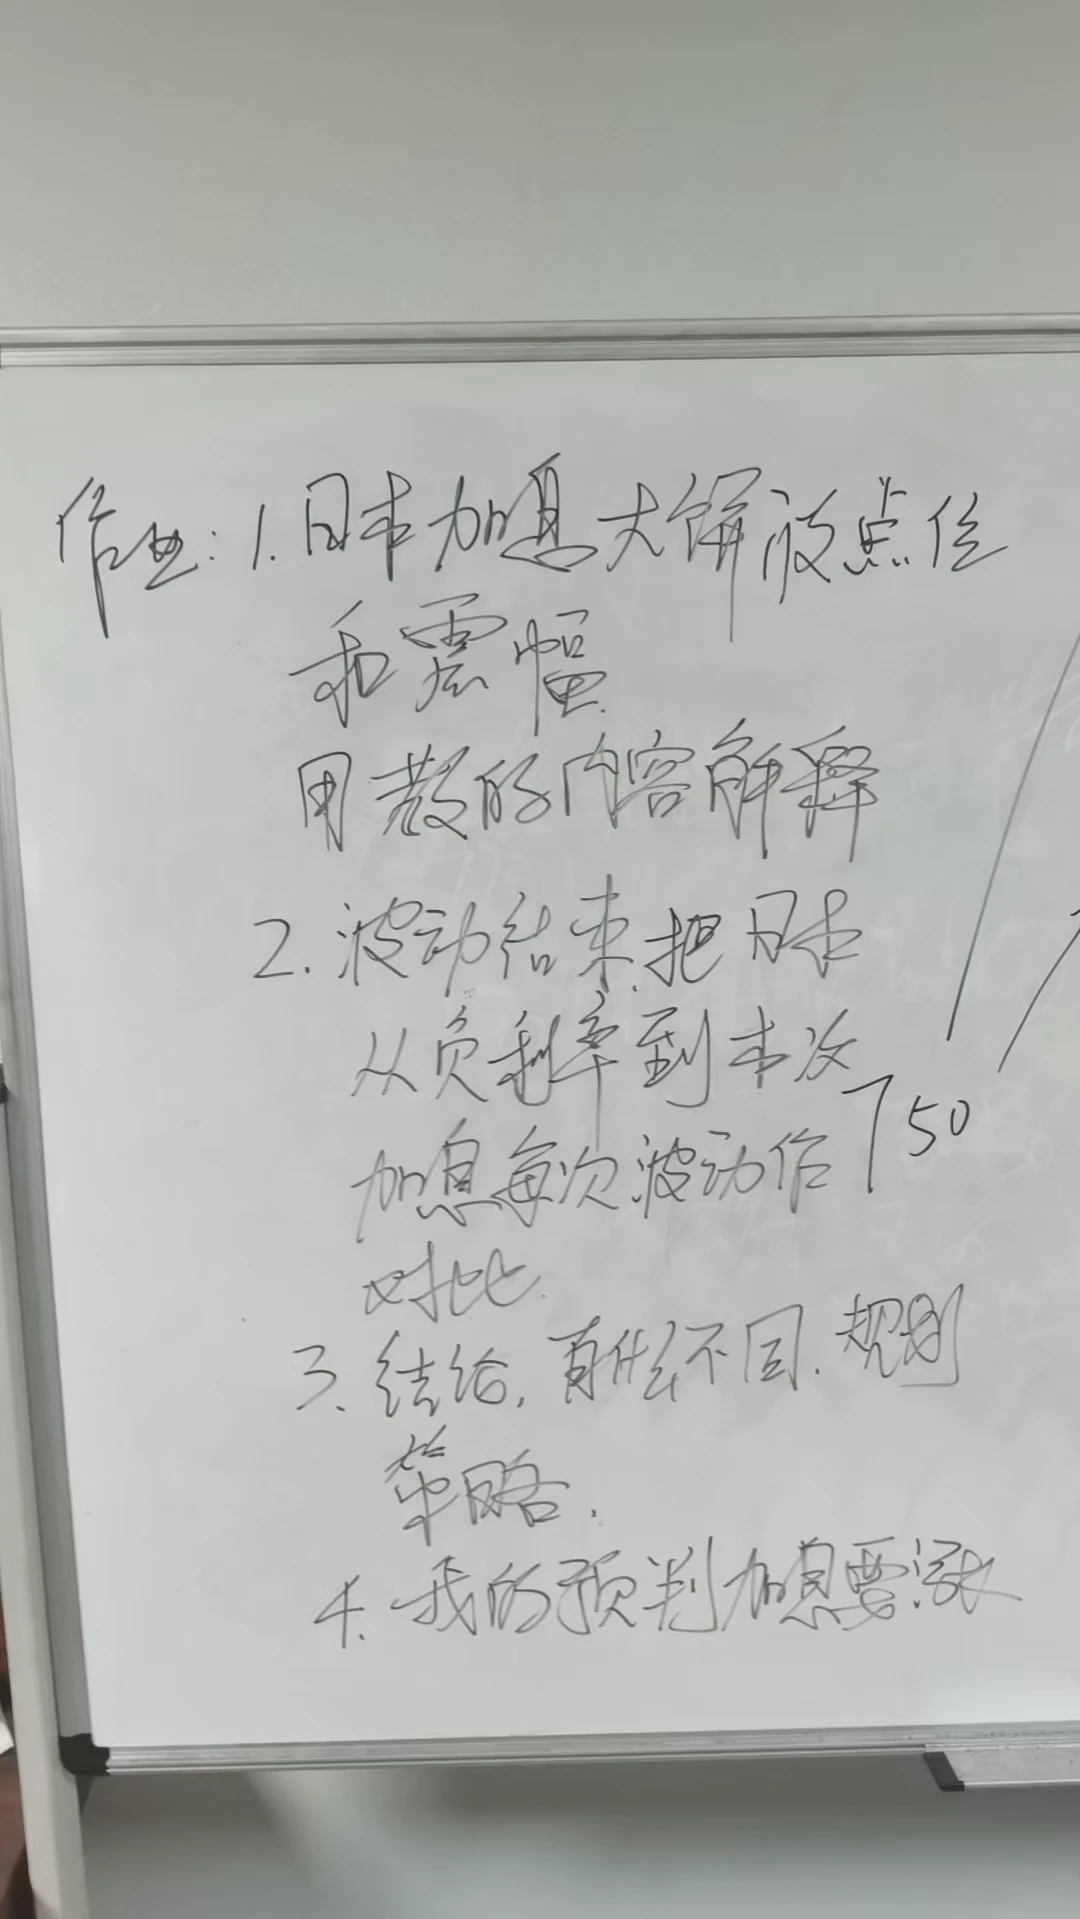 作业:1.日本加息大饼放点位
和震幅.
用教的内容解释
2.波动结束.把日本
从负利率到本次
加息每次波动作
750
对比.
3.结论,有什么不同.规则
策略.
4.我的预判加息要涨